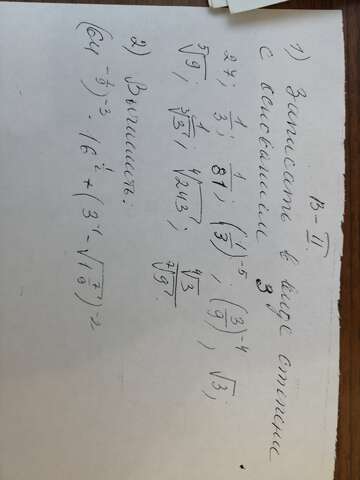 В-II
1) Записать в виде степени
с основанием 3
27; 1/3; 1/81; (1/3)^-5; (3/9)^-4, √3;
⁵√9; 1/³√3; ⁴√243; ⁴√3/⁷√9.
2) Вычислить: